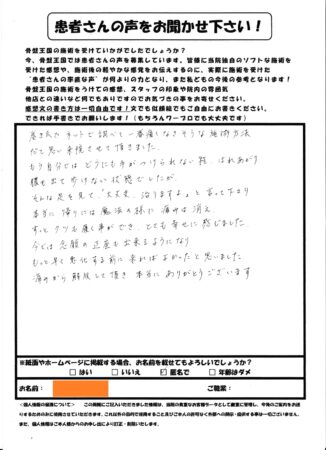 患者さんの声をお聞かせ下さい！
骨盤王国の施術を受けていかがでしたでしょうか？
今、骨盤王国では患者さんの声を募集しています。皆様に当院独自のソフトな施術を
受けた感想や、施術後の軽やかな感覚をお伝えするのに、実際に施術を受けた
“患者さんの率直な声”が何よりの力となり、また私どもの今後の参考となります！
骨盤王国の施術をうけての感想、スタッフの印象や院内の雰囲気
他店との違いなど何でもありですのでお気づきの事をお寄せください。
感想文の書き方は一切自由です！文でも似顔絵でもご自由にお書きください。
できれば手書きでお願いします！（もちろんワープロでも大丈夫です）
ネットで調べて一番痛くなさそうな施術方法
だと思い来院させて頂きました。
もう自分ではどうにも手がつけられない程、はれあがり
膿も出て歩けない状態でしたが、
そんな足を見て、「大丈夫、治りますよ。」と言って下さり
本当に帰りには魔法の様に痛みは消え
すっとクツも履く事ができ、とても幸せに感じました
今では念願の正座も出来るようになり
もっと早く悪化する前に来ればよかったと思いました
痛みから解放して頂き本当にありがとうございます
※紙面やホームページに掲載する場合、お名前を載せてもよろしいでしょうか？
□ はい □ いいえ ☑ 匿名で □ 年齢はダメ
お名前： ご職業：
＜個人情報の保護について＞ この用紙にご記入いただきました情報は、当院の貴重なお客様データとして厳重に管理し、今後のご案内をお送り
するためのみに使用させていただきます。これ以外の目的で使用すること及びご本人の許可なく外部への開示・提供する事は一切ございません。
また、個人情報はご本人様からのお申し出により訂正・削除いたします。